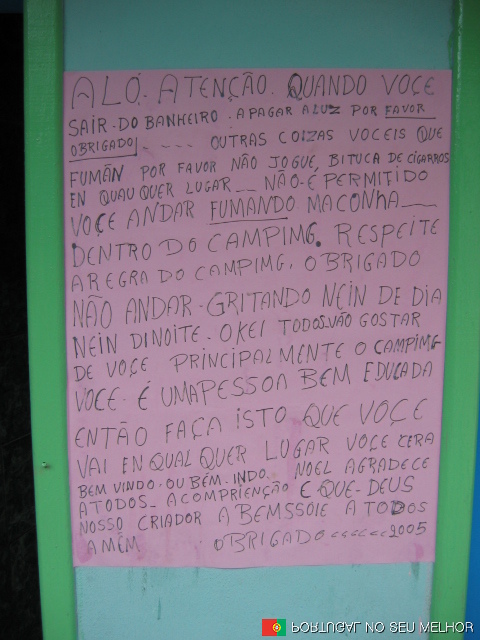 ALÓ. ATENÇÃO. QUANDO VOÇE
SAIR. DO BANHEIRO. APAGAR A LUZ POR FAVOR
OBRIGADO. - - - - OUTRAS COIZAS VOCEIS QUE
FUMÃN POR FAVOR NÃO JOGUE, BITUCA DE CIGARROS
EN QUAU QUER LUGAR - - NÃO-É PERMITIDO
VOÇE ANDAR FUMANDO MACONHA - -
DENTRO DO CAMPIMG. RESPEITE
A REGRA DO CAMPIMG. OBRIGADO
NÃO ANDAR-GRITANDO NEIN DE DIA
NEIN DINOITE. OKEI TODOS.VÃO GOSTAR
DE VOÇE PRINCIPALMENTE O CAMPIMG
VOCE. É UMAPESSOA BEM EDUCADA
ENTÃO FAÇA ISTO QUE VOÇE
VAI EN QUAL QUER LUGAR VOÇE CERA
BEM VINDO. OU BEM-INDO. NOEL AGRADECE
A TODOS- A COMPRIENÇÃO E QUE-DEUS
NOSSO CRIADOR A BEMSSOIE A TODOS
AMÉM OBRIGADO <<<<<< 2005
PORTUGAL NO SEU MELHOR